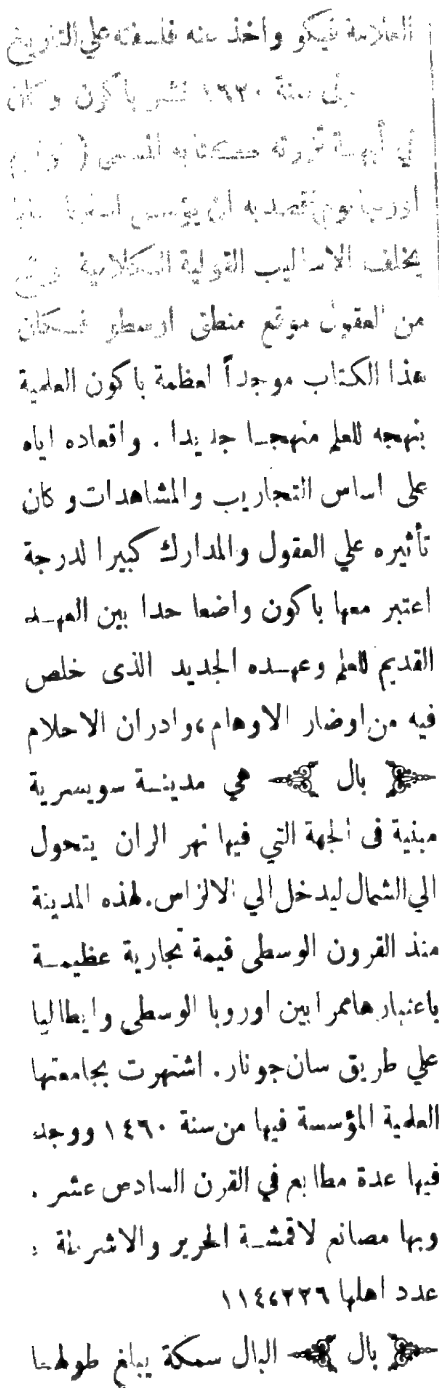 العلامة فيكو واخذ عنه فلسفته علي التاريخ
سنة ١٦٢٠ نشر باكون وكان
أبهة كتابه المسمى (
ان يؤسس
يخلف الاساليب القولية الكلامية
من العقول موقع منطق ارسطو فكان
هذا الكتاب موجداً لعظمة باكون العلمية
بنهجه للعلم منهجا جديدا . واقعاده اياه
على اساس التجاريب والمشاهدات وكان
تأثيره علي العقول والمدارك كبيرا لدرجة
اعتبر معها باكون واضعا حدا بين العهد
القديم للعلم وعهده الجديد الذى خلص
فيه من اوضار الاوهام ،وادران الاحلام
﴿ بال ﴾ هي مدينة سويسرية
مبنية فى الجهة التي فيها نهر الران يتحول
الي الشمال ليدخل الي الالزاس. لهذه المدينة
منذ القرون الوسطى قيمة تجارية عظيمة
باعتبارها ممرا بين اوروبا الوسطى وايطاليا
علي طريق سان جونار . اشتهرت بجامعتها
العلمية المؤسسة فيها من سنة ١٤٦٠ ووجد
فيها عدة مطابع في القرن السادس عشر .
وبها مصانع لاقمشة الحرير والاشرطة :
عدد اهلها ١١٤،٢٢٦
﴿ بال ﴾ البال سمكة يبلغ طولها